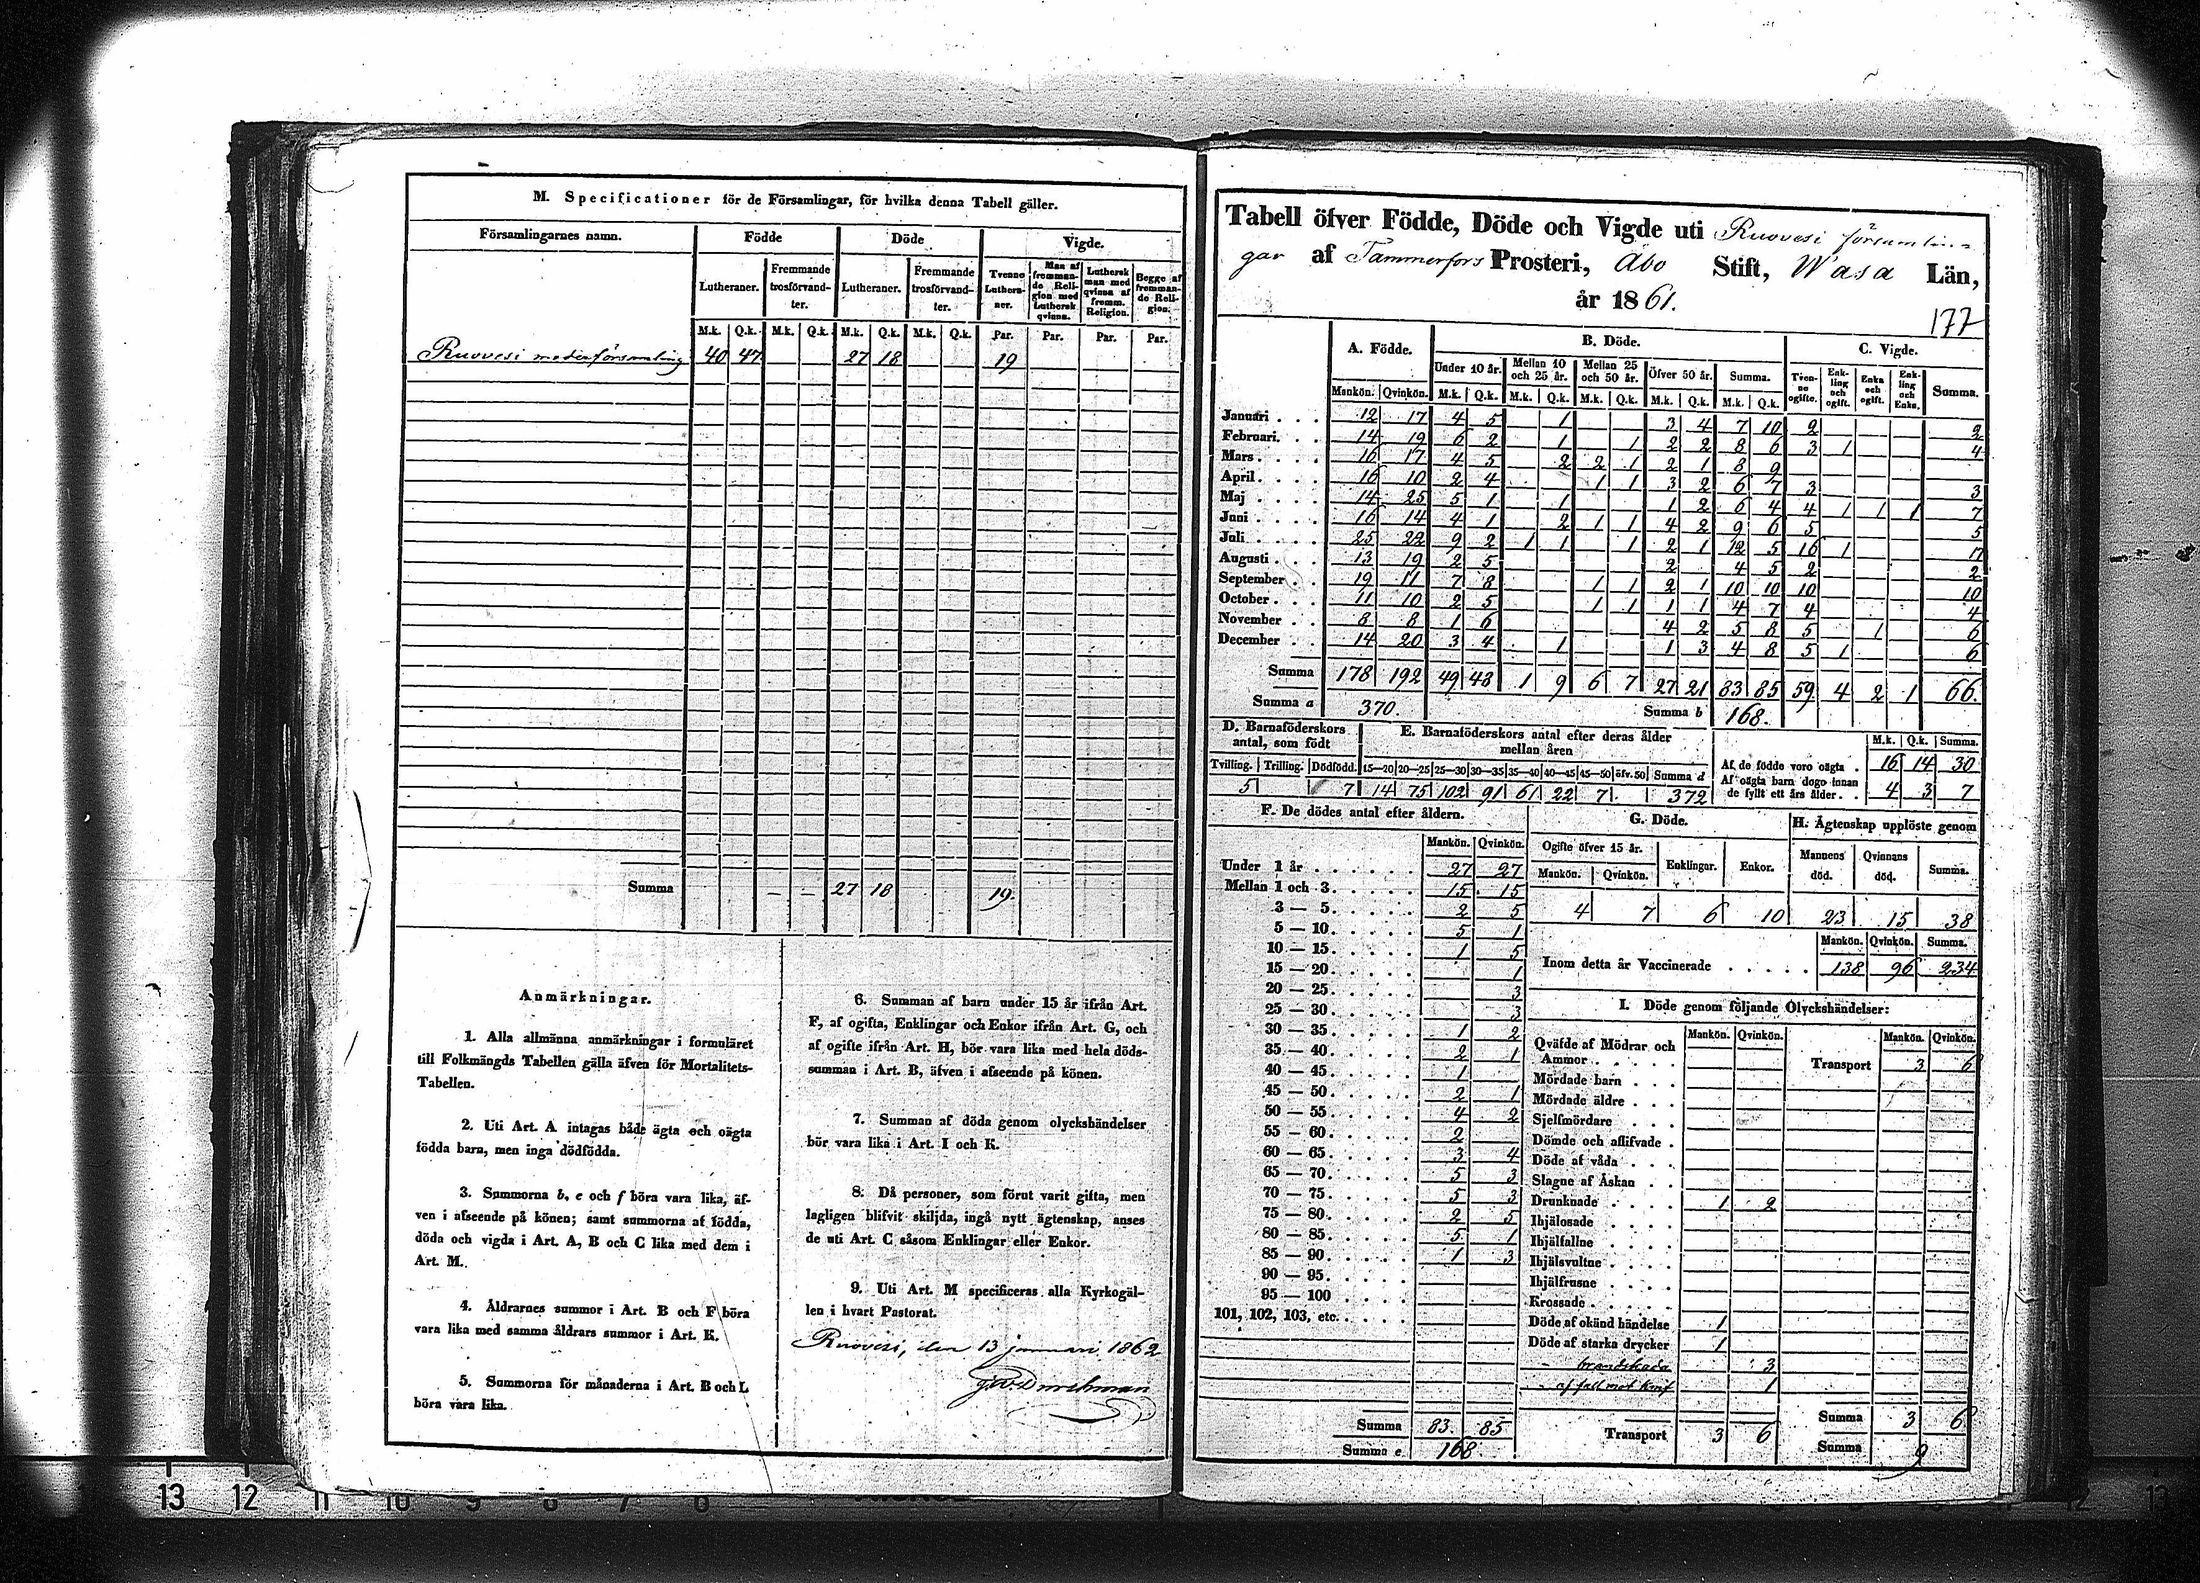 M. Specificationer för de Församlingar, för hvilka denna Tabell gäller.
Församlingarnes namn. Födde Döde Vigde.
Lutheraner. Fremmande trosförvandter. Lutheraner. Fremmande trosförvandter. Tvenne Lutheraner. Man af fremmande Religion med Luthersk qvinna. Luthersk man med qvinna af fremm. Religion. Begge af fremmande Religion.
M.k. Q.k. M.k. Q.k. M.k. Q.k. M.k. Q.k. Par. Par. Par. Par.
Ruovesi moderförsamling 40 47 27 18 19
Summa — — 27 18 19.
Anmärkningar.
1. Alla allmänna anmärkningar i formuläret
till Folkmängds Tabellen gälla äfven för Mortalitets-
Tabellen.
2. Uti Art. A intagas både ägta och oägta
födda barn, men inga dödfödda.
3. Summorna b, e och f böra vara lika, äf-
ven i afseende på könen; samt summorna af födda,
döda och vigda i Art. A, B och C lika med dem i
Art. M.
4. Åldrarnes summor i Art. B och F böra
vara lika med samma åldrars summor i Art. K.
5. Summorna för månaderna i Art. B och L
böra vara lika.
6. Summan af barn under 15 år ifrån Art.
F, af ogifta, Enklingar och Enkor ifrån Art. G, och
af ogifte ifrån Art. H, bör vara lika med hela döds-
summan i Art. B, äfven i afseende på könen.
7. Summan af döda genom olyckshändelser
bör vara lika i Art. I och K.
8. Då personer, som förut varit gifta, men
lagligen blifvit skiljda, ingå nytt ägtenskap, anses
de uti Art. C såsom Enklingar eller Enkor.
9. Uti Art. M specificeras alla Kyrkogäl-
len i hvart Pastorat.
Ruovesi, den 13 januari 1862
Tabell öfver Födde, Döde och Vigde uti Ruovesi församlin-
gar af Tammerfors Prosteri, Åbo Stift, Wasa Län,
år 1861.
177
A. Födde. B. Döde. C. Vigde.
Under 10 år. Mellan 10 och 25 år. Mellan 25 och 50 år. Öfver 50 år. Summa. Tvenne ogifte. Enkling och ogift. Enka och ogift. Enkling och Enka. Summa.
Mankön. Qvinkön. M.k. Q.k. M.k. Q.k. M.k. Q.k. M.k. Q.k. M.k. Q.k.
Januari 12 17 4 5 1 3 4 7 10 2 2
Februari 14 19 6 2 1 1 2 2 8 6 3 1 4
Mars 16 17 4 5 2 2 1 2 1 8 9
April 16 10 2 4 1 1 3 2 6 7 3 3
Maj 14 25 5 1 1 1 2 6 4 4 1 1 1 7
Juni 16 14 4 1 2 1 1 4 2 9 6 5 5
Juli 25 22 9 2 1 1 1 2 1 12 5 16 1 17
Augusti 13 19 2 5 2 4 5 2 2
September 19 11 7 8 1 1 2 1 10 10 10 10
October 11 10 2 5 1 1 1 1 4 7 4 4
November 8 8 1 6 4 2 5 8 5 1 6
December 14 20 3 4 1 1 3 4 8 5 1 6
Summa 178 192 49 48 1 9 6 7 27 21 83 85 59 4 2 1 66.
Summa a 370. Summa b 168.
D. Barnaföderskors antal, som födt
Tvilling. Trilling. Dödfödd.
5 7
E. Barnaföderskors antal efter deras ålder mellan åren
15—20 20—25 25—30 30—35 35—40 40—45 45—50 öfv. 50 Summa d
14 75 102 91 61 22 7 372
M.k. Q.k. Summa.
Af de födde voro oägta 16 14 30
Af oägta barn dogo innan
de fyllt ett års ålder 4 3 7
F. De dödes antal efter åldern.
Mankön. Qvinkön.
Under 1 år 27 27
Mellan 1 och 3 15 15
3 — 5 2 5
5 — 10 5 1
10 — 15 1 5
15 — 20 1
20 — 25 3
25 — 30 3
30 — 35 1 2
35 — 40 2 1
40 — 45 1
45 — 50 2 1
50 — 55 4 2
55 — 60 2
60 — 65 3 4
65 — 70 5 3
70 — 75 5 3
75 — 80 2 5
80 — 85 5 1
85 — 90 1 3
90 — 95
95 — 100
101, 102, 103, etc.
Summa 83. 85
Summa e 168.
G. Döde.
Ogifte öfver 15 år. Enklingar. Enkor.
Mankön. Qvinkön.
4 7 6 10
H. Ägtenskap upplöste genom
Mannens död. Qvinnans död. Summa.
23 15 38
Mankön. Qvinkön. Summa.
Inom detta år Vaccinerade 138 96 234
I. Döde genom följande Olyckshändelser:
Mankön. Qvinkön. Mankön. Qvinkön.
Qväfde af Mödrar och
Ammor
Transport 3 6
Mördade barn
Mördade äldre
Sjelfmördare
Dömde och aflifvade
Döde af våda
Slagne af Åskan
Drunknade 1 2
Ihjälosade
Ihjälfallne
Ihjälsvultne
Ihjälfrusne
Krossade
Döde af okänd händelse 1
Döde af starka drycker 1
brandskada 3
af fall mot knif 1
Transport 3 6
Summa 3 6
Summa 9
13 12 11 10 9 8 7 6
12 13